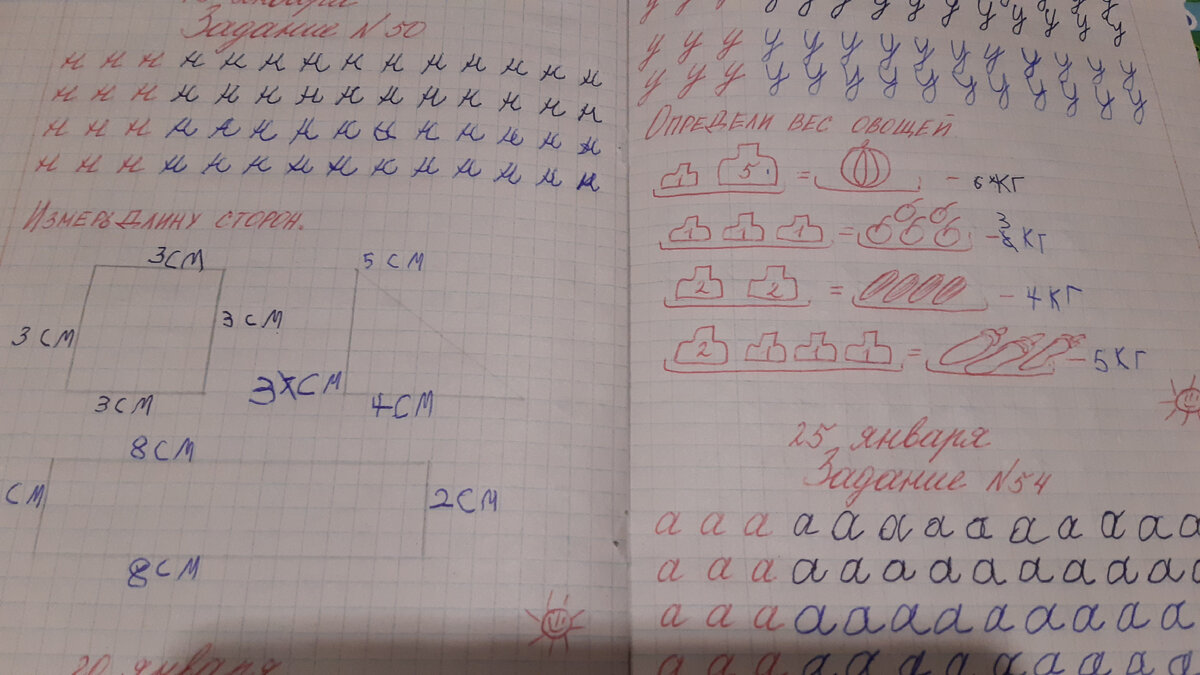 января
Задание N50
н н н н н н н н н н н н н н
н н н н н н н н н н н н н н
н н н н н н н н н н н н н н
н н н н н н н н н н н н н н
ИЗМЕРЬ ДЛИНУ СТОРОН.
3СМ
3 СМ
3 СМ
3СМ
5 СМ
3 СМ
4СМ
8СМ
СМ
2СМ
8СМ
20 января
у у у у у у у у у у у у у у
у у у у у у у у у у у у у у
у у у у у у у у у у у у у у
ОПРЕДЕЛИ ВЕС ОВОЩЕЙ.
1 5 = – 6 КГ
1 1 1 = – 3 КГ
2 2 = – 4КГ
2 1 1 1 = – 5КГ
25 января
Задание N54
а а а а а а а а а а а а а
а а а а а а а а а а а а а
а а а а а а а а а а а а
а а а а а а а а а а а а